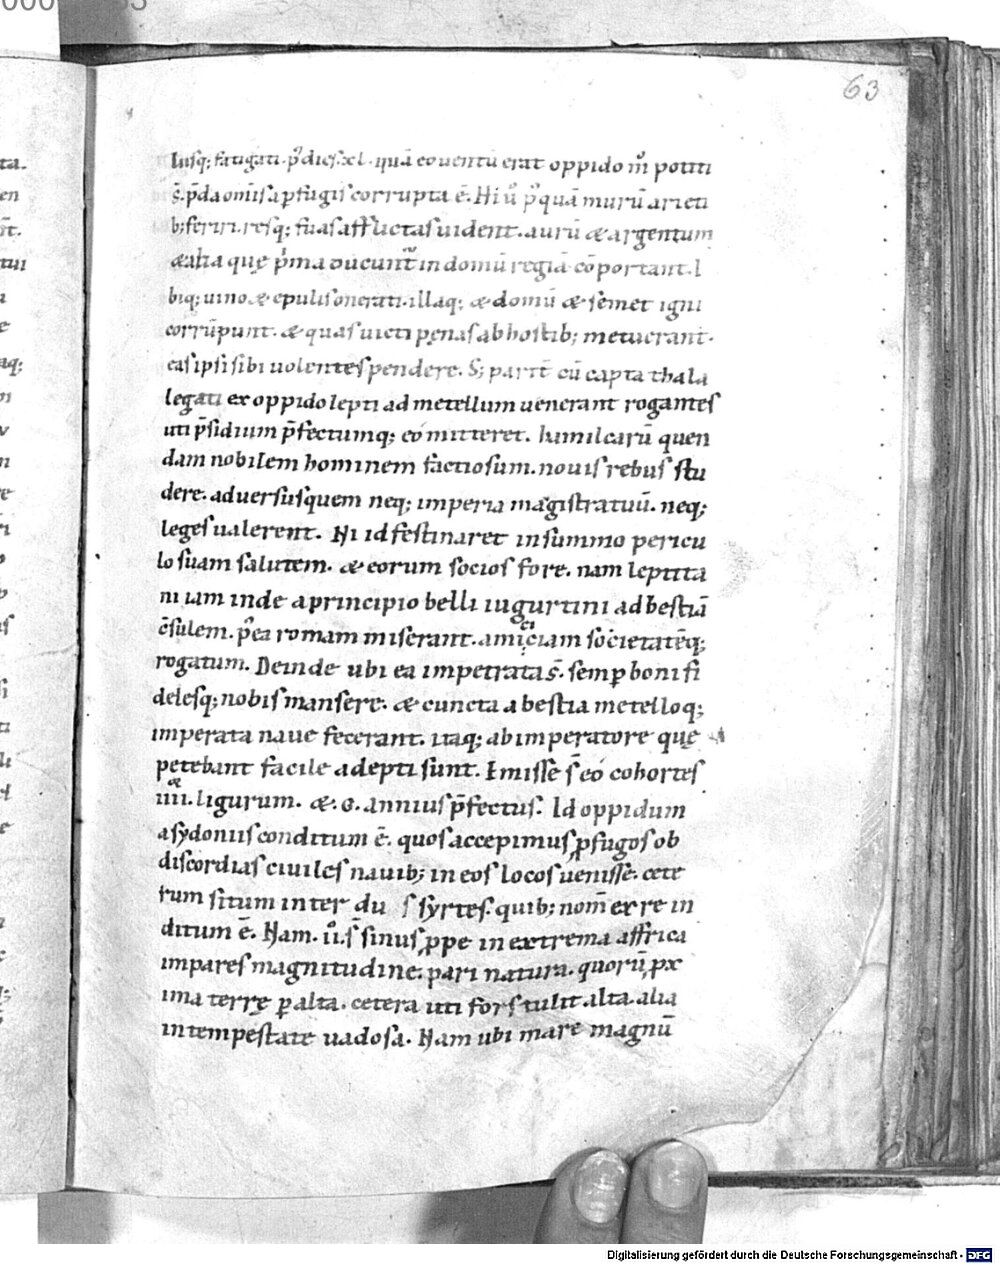 63
lusq; fatigati. p̄ dies. xl. quā eo uentū erat oppido m̊ potiti
s̄. p̄da om̄is a pfugis corrupta ē. Hi ů p̊quā murū arieti
b; feriri. resq; suas afflictas uident. aurū & argentum
& alia quę p̊ma ducunt̄ in domū regiā cōportant. I
biq; uino & epulis onerati. illaq; & domū & semet igni
corrūpunt. & quas uicti pęnas ab hostib; metuerant.
eas ipsi sibi uolentes pendere. S; parit̄ cū capta thala
legati ex oppido lepti ad metellum uenerant rogantes
uti p̄sidium p̄fectumq; eo mitteret. hamilcarū quen
dam nobilem hominem factiosum. nouis rebus stu
dere. aduersusquem neq; imperia magistratuū. neq;
leges ualerent. Ni id festinaret in summo pericu
lo suam salutem. & eorum socios fore. nam leptita
ni iam inde a principio belli iugurtini ad bestiā
c̄sulem. p̊ea romam miserant. amiciciam societatēq;
rogatum. Deinde ubi ea impetrata s̄. semp boni fi
delesq; nobis mansere. & cuncta a bestia metelloq;
imperata naue fecerant. itaq; ab imperatore quę
petebant facile adepti sunt. Emisse s̄ eo cohortes
iiii. ligurum. & .G. annius p̄fectus. Id oppidum
a sydoniis conditum ē. quos accepimus pfugos ob
discordias ciuiles nauib; in eos locos uenisse. cete
rum situm inter du s syrtes. quib; nom̄ ex re in
ditum ē. Nam. ii. s̄ sinus ppe in extrema affrica
impares magnitudine. pari natura. quorū px
ima terrę palta. cetera uti fors tulit. alta. alia
in tempestate uadosa. Nam ubi mare magnū
Digitalisierung gefördert durch die Deutsche Forschungsgemeinschaft - DFG